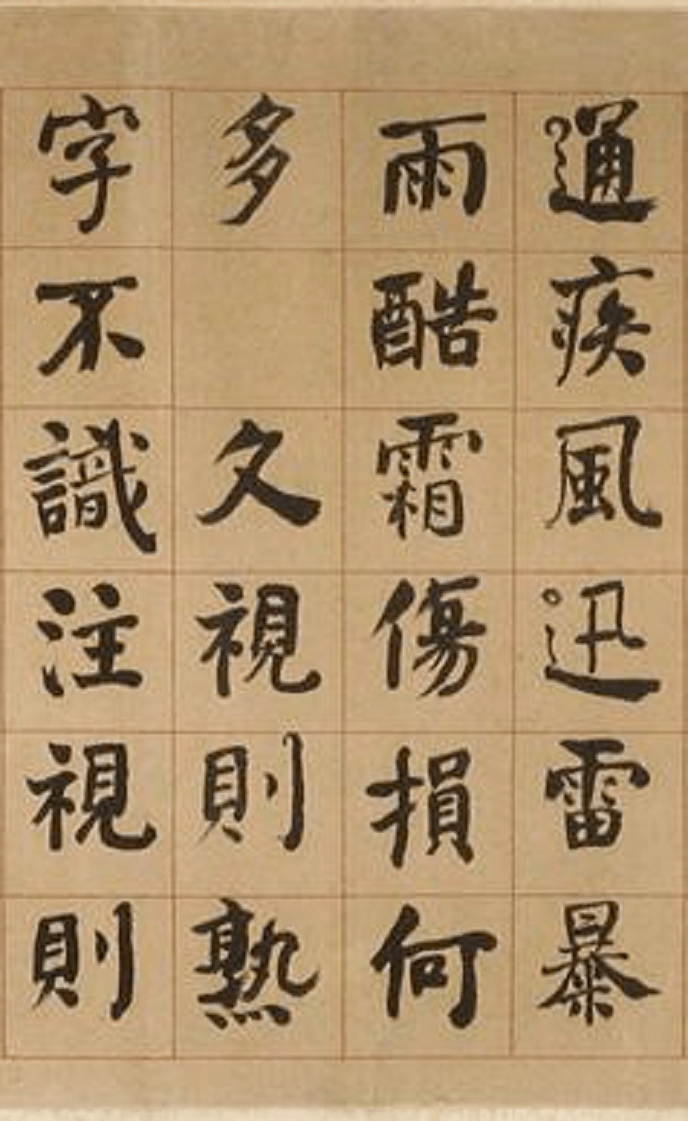 通疾風迅雷暴
雨酷霜傷損何
多　久視則熟
字不識注視則